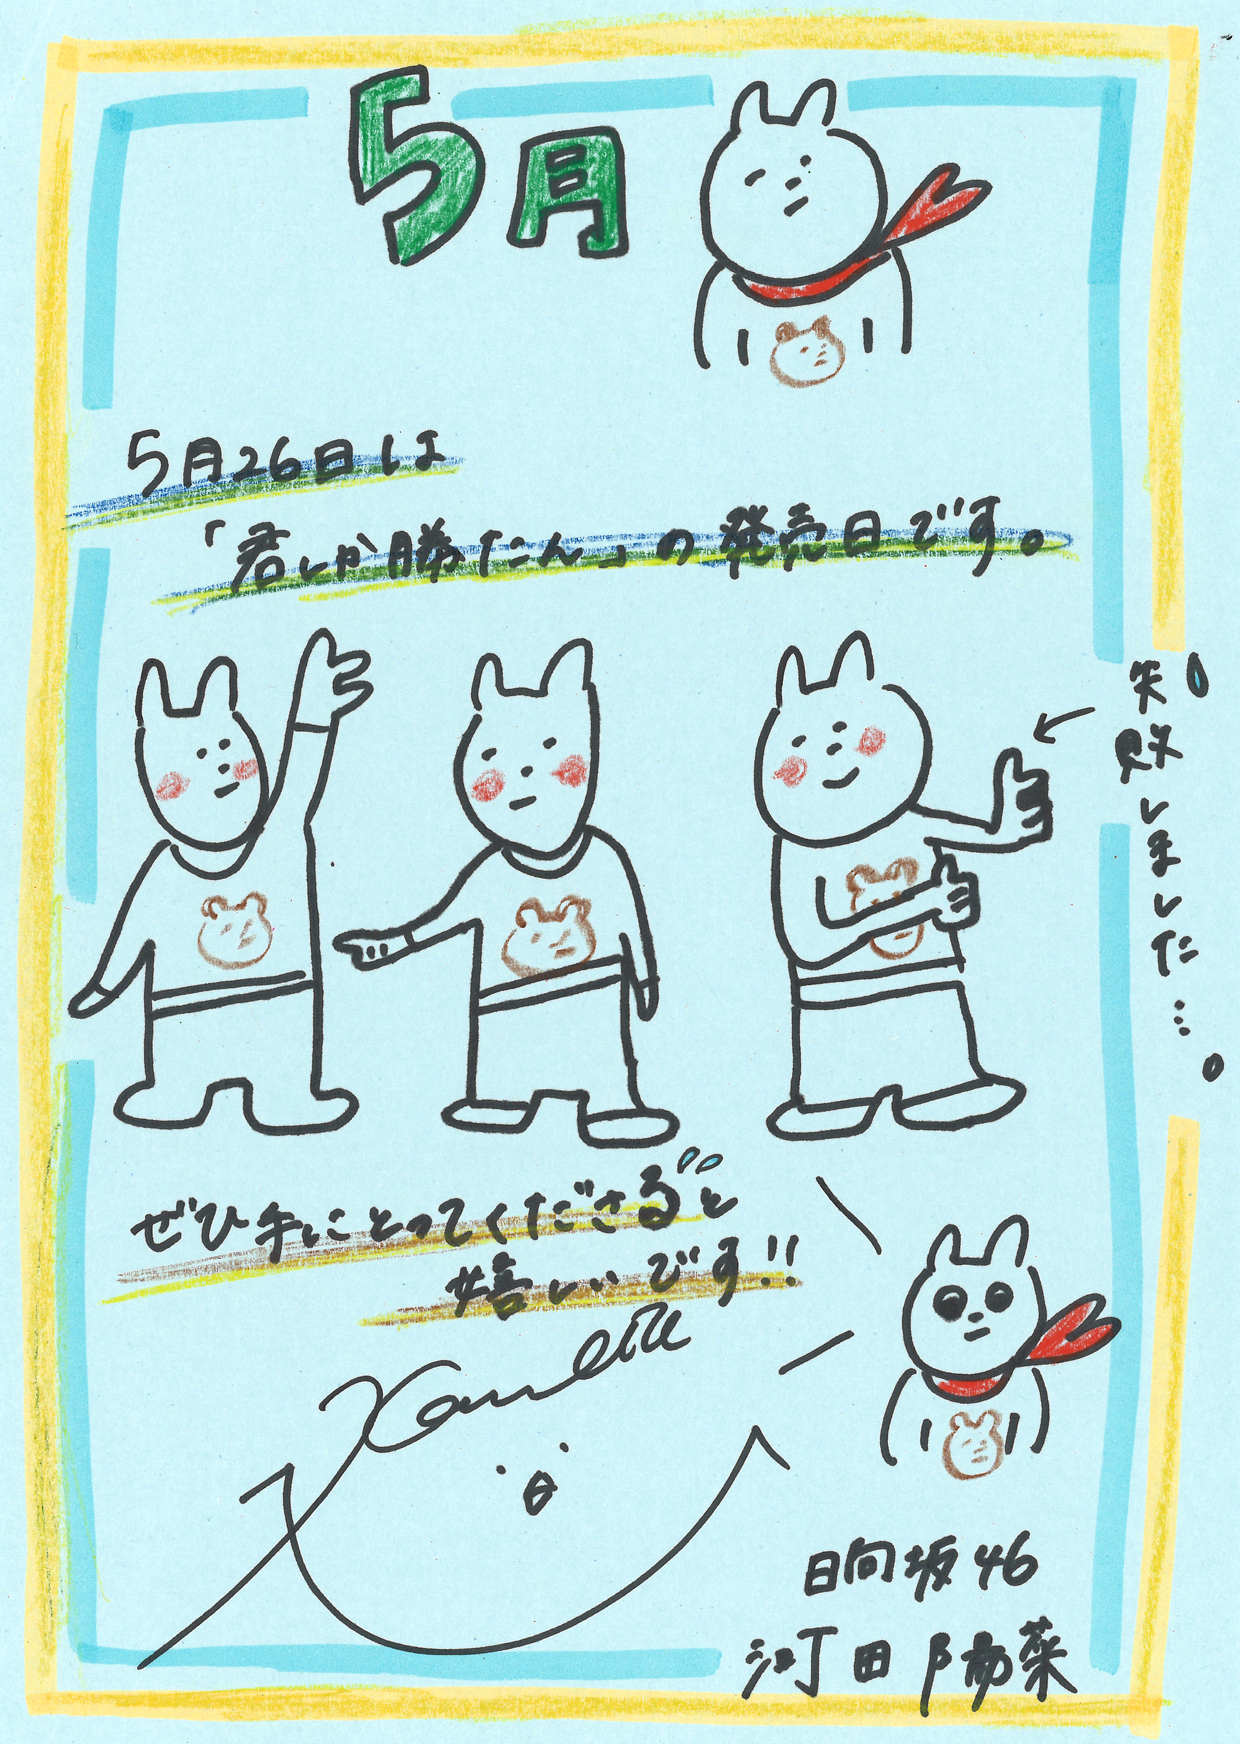 5月
5月26日は
「君しか勝たん」の発売日です。
失敗しました…。
ぜひ手にとってくださると
嬉しいです!!
日向坂46
河田陽菜